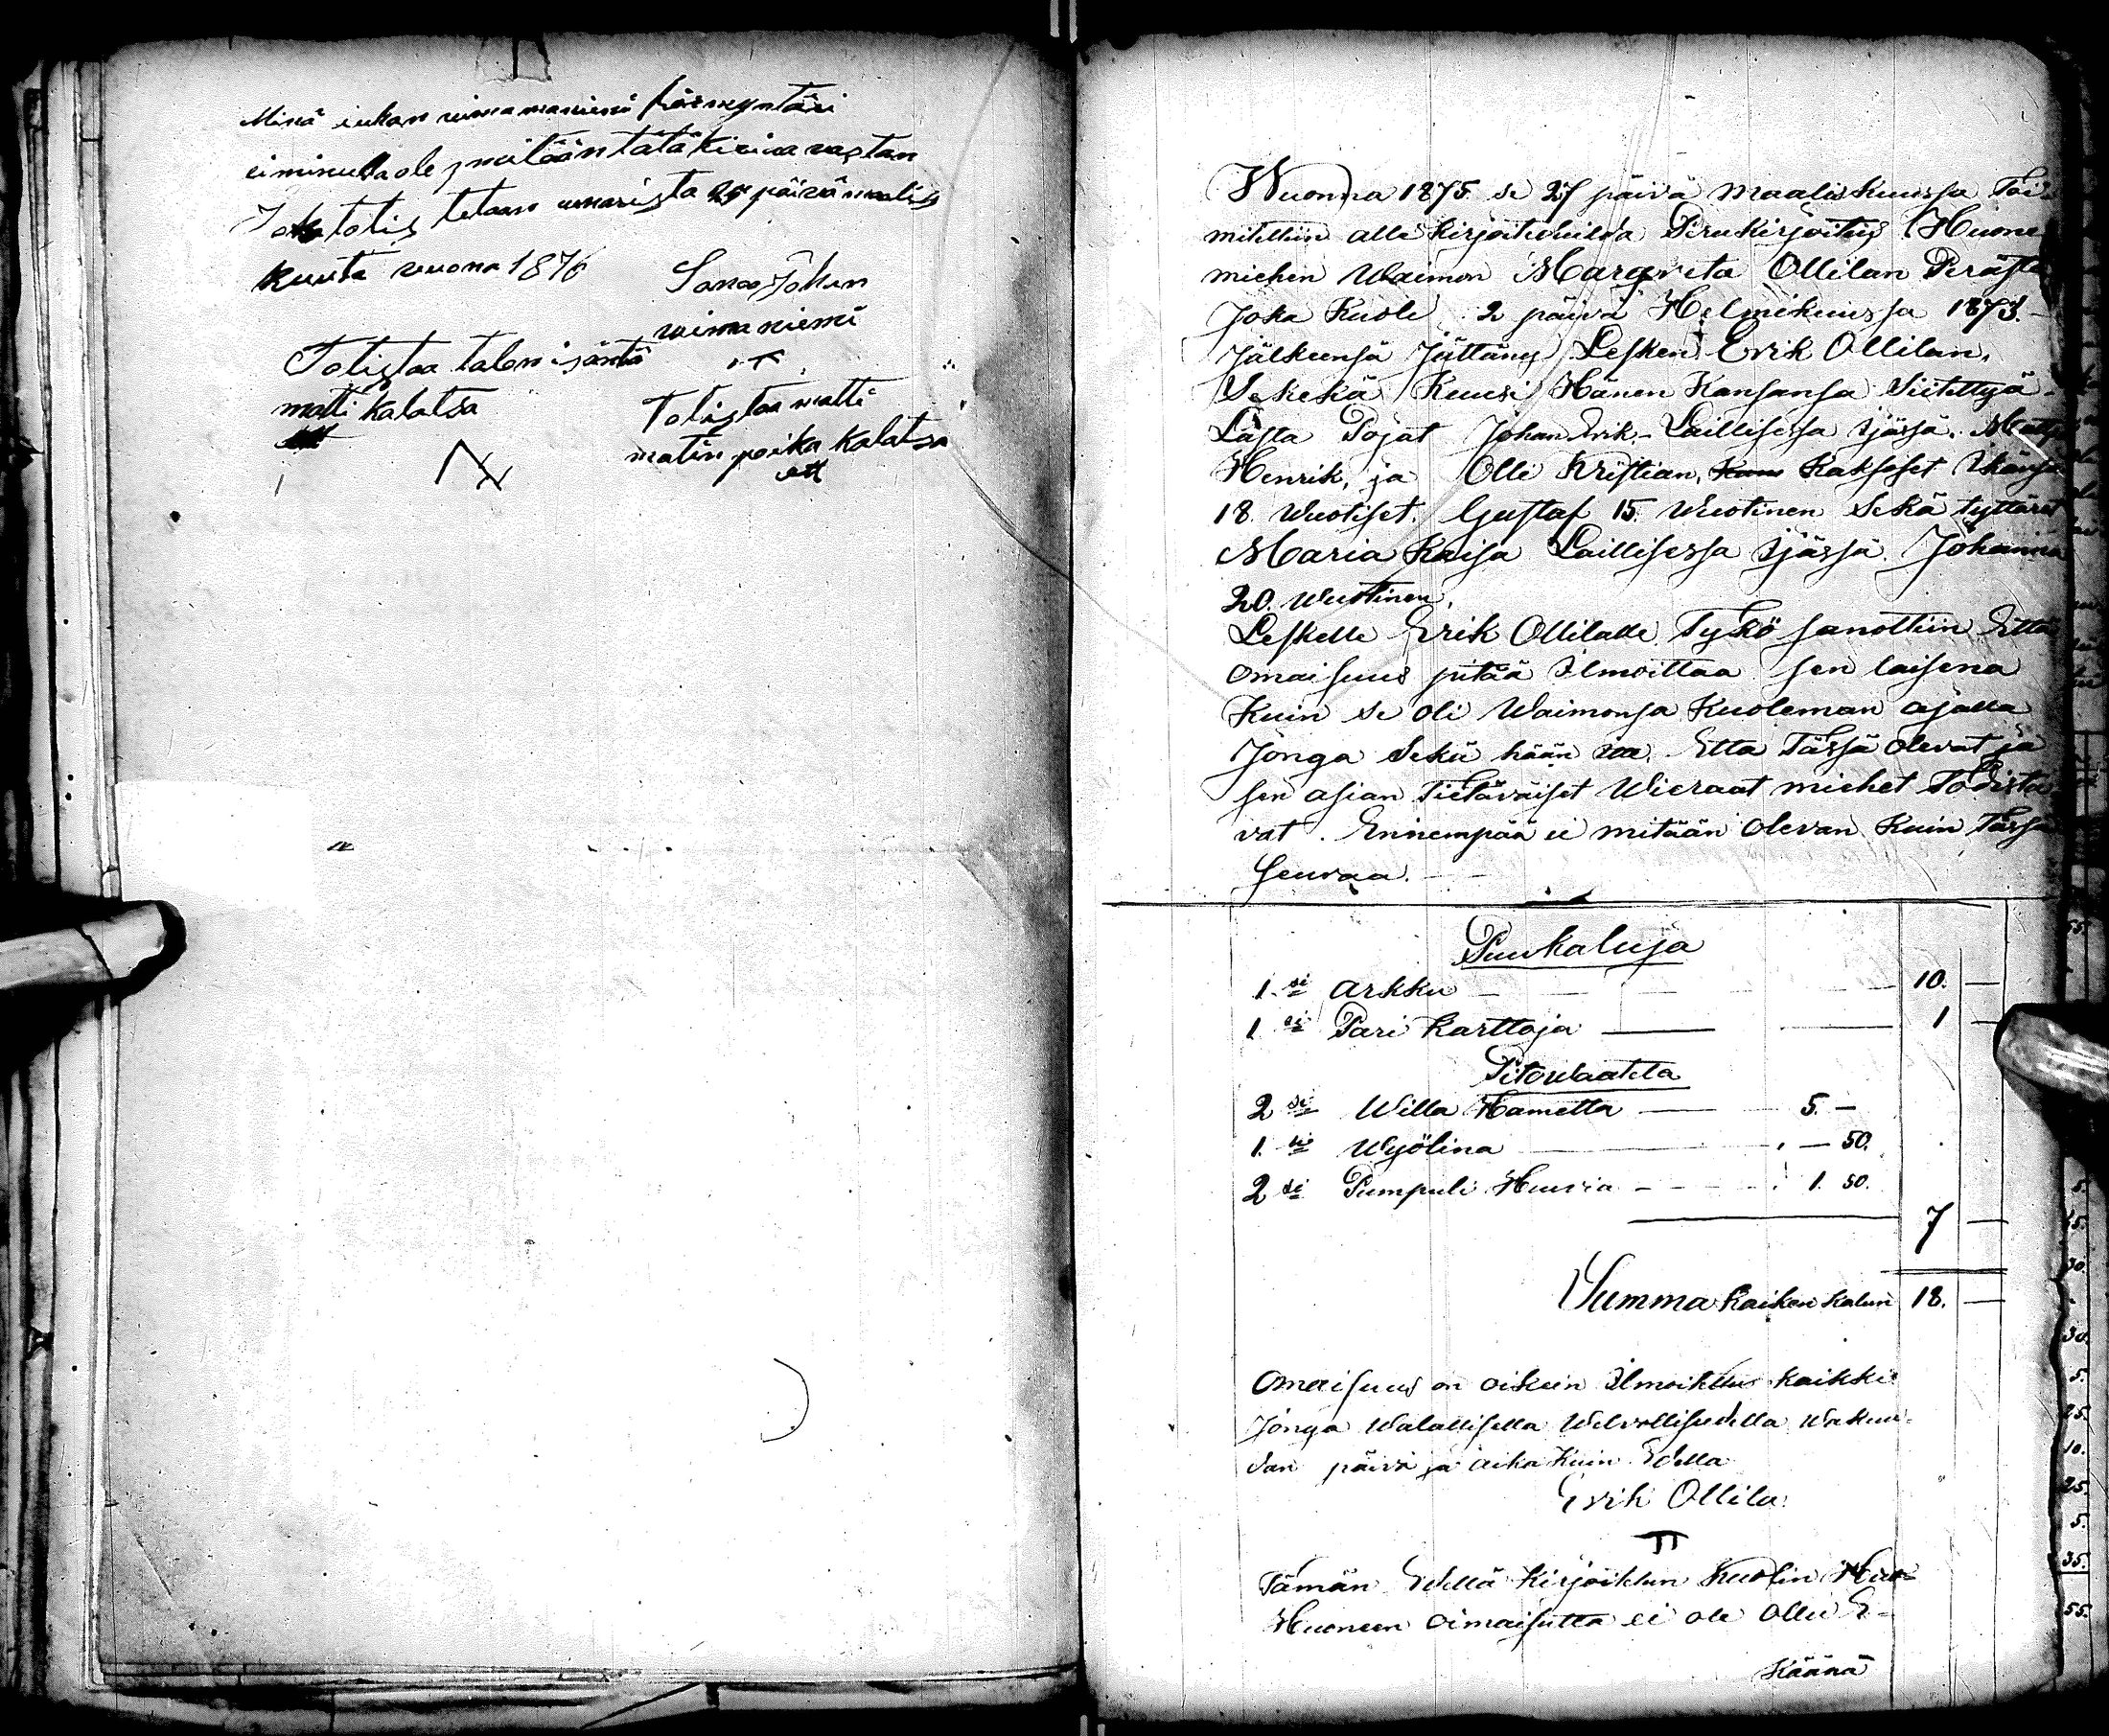 Minä iukan niemaniemi
ei minulla ole mitään tätä kirjaa vastan
Joka totis tetaan päivä maalis
kuuta vuona 1876
Johan
niemaniemi
Totistaa talon isäntä
matti kalatsa
Totistaa matti
matin poika kalatsa
Wuonna 1875 se 27 päivä Maaliskuussa Toi-
mitettiin alle kirjoitetuilda Perukirjoitus Huone
miehen Waimon Margreta Ollilan Perästä
Joka Kuoli 2 päivä Helmikuussa 1873.
Jälkeensä Jättäny Lesken Erik Ollilan,
Sekekä Kuusi Hänen Kansansa Siitettyä
Lasta Pojat Johan Erik Laillisessa Ijässä, Matts
Henrik, ja Olli Kristian, Kaksoset Ikänsä
18 Wuotiset. Gustaf 15. Wuotinen Sekä tyttäret
Maria Kaisa Laillisessa Ijässä Johanna
20. Wuotinen,
Leskelle Erik Ollilalle Tykö sanottiin Että
omaisuus pitää Ilmoittaa sen laisena
Kuin se oli Waimonsa Kuoleman ajalla
Jonga Sekä hään Etta Tässä olevat ja
sen asian Tietäväiset Wieraat miehet Todista-
vat. Ennempää ei mitään olevan Kuin Tässä
Seuraa.
Puukaluja
1 si Arkku 10. —
1 si Pari Karttoja 1 —
Pitowaateta
2 si Willa Hametta 5. —
1. si Wyölina — 50.
2 si Pumpuli Huivia 1. 50.
7 —
Summa Kaiken kalun 18. —
Omaisuus on oikein Ilmoitettu kaikki
Jonga Walallisella Welvollisudella Wakuu-
dan päivä ja aika Kuin Edella
Erik Ollila
Tämän Edellä Kirjoitetun Kuolin Huo-
Huoneen Oimaisutta ei ole Ollu E-
Käänä